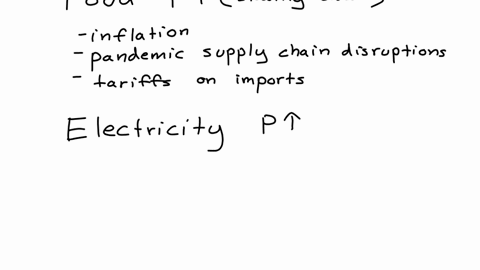 - inflation
- pandemic supply chain disruptions
- tariffs on imports
Electricity P↑